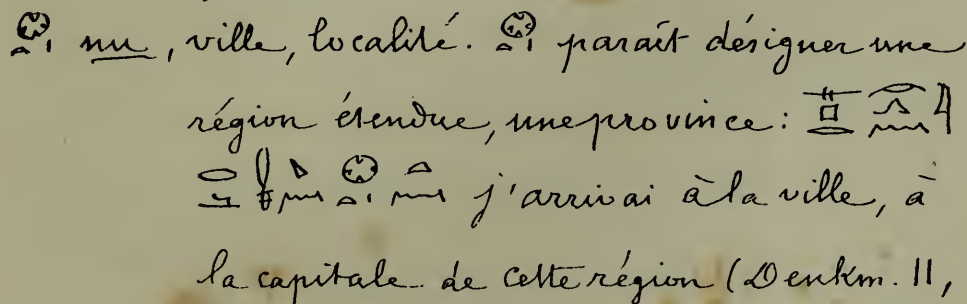 𓊖 nu, ville, localité. 𓊖 parait désigner une
région étendue, une province:
j'arrivai à la ville, à
la capitale de cette région (Denkm. II,